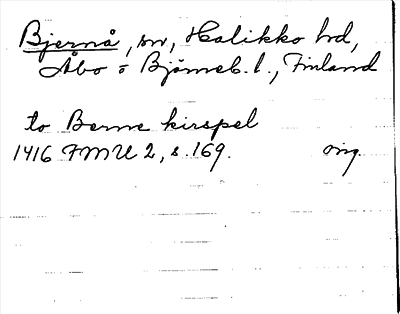 Bjernå, sn, Halikko hd,
Åbo o Björneb. l., Finland
to Berne kirspel
1416 FMU 2, s. 169. orig.